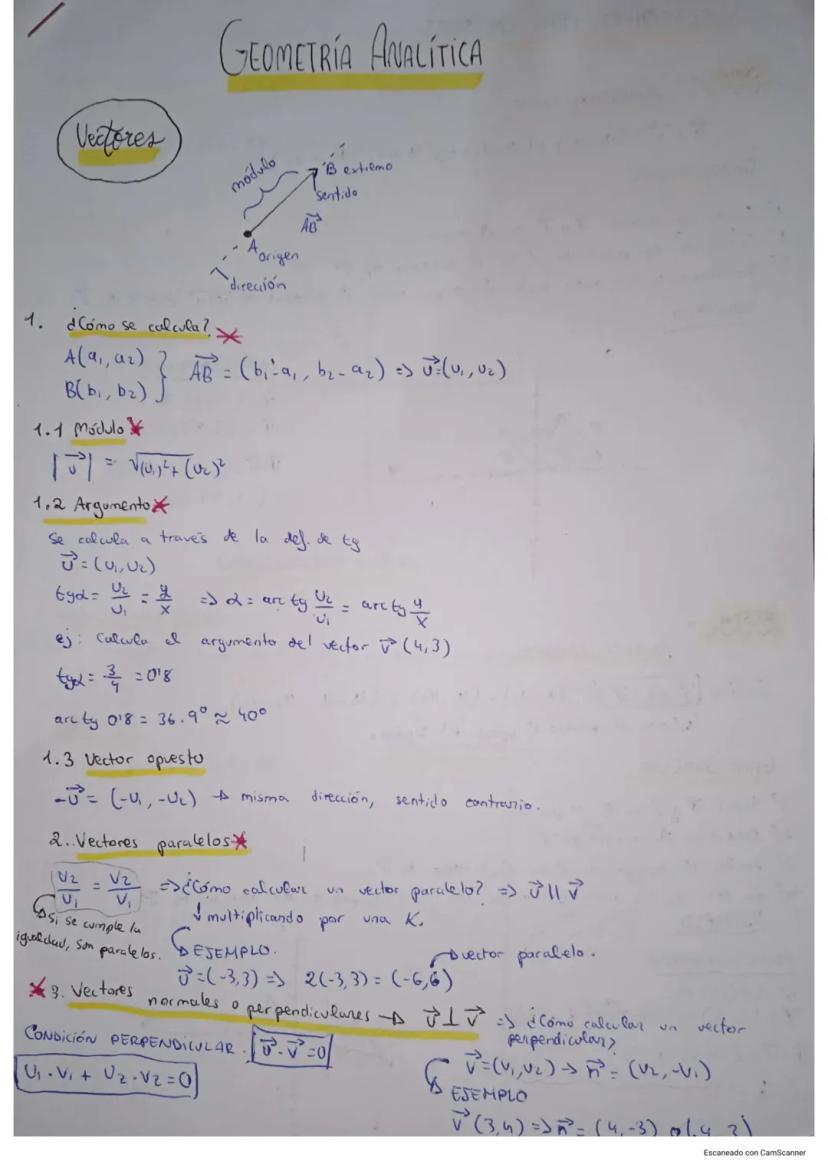 GEOMETRÍA ANALÍTICA
Vectores
módulo
B extremo
sentido
AB⃗
A origen
dirección
1. ¿Cómo se calcula?
A(a₁, a₂)
B(b₁, b₂)
} AB⃗ = (b₁-a₁, b₂-a₂) => u⃗=(u₁, u₂)
1.1 Módulo
|u⃗| = √(u₁)²+(u₂)²
1.2 Argumento
Se calcula a través de la def. de tg
u⃗=(u₁, u₂)
tgα= u₂/u₁ = y/x => α = arc tg u₂/u₁ = arc tg y/x
ej: Calcula el argumento del vector v⃗ (4,3)
tgα= 3/4 = 0'8
arc tg 0'8 = 36.9º ≈ 40º
1.3 Vector opuesto
-u⃗ = (-u₁, -u₂) → misma dirección, sentido contrario.
2. Vectores paralelos
u₂/u₁ = v₂/v₁ => ¿Cómo calcular un vector paralelo? => u⃗ || v⃗
↓ multiplicando por una K.
Si se cumple la
igualdad, son paralelos.
EJEMPLO.
vector paralelo.
u⃗=(-3,3) => 2(-3,3) = (-6,6)
3. Vectores normales o perpendiculares → u⃗ ⊥ v⃗ => ¿Cómo calcular un vector
perpendicular?
CONDICIÓN PERPENDICULAR. u⃗·v⃗=0
v⃗=(v₁,v₂) → n⃗ = (v₂, -v₁)
u₁·v₁ + u₂·v₂=0
EJEMPLO
v⃗ (3,4) => n⃗ = (4,-3)
Escaneado con CamScanner